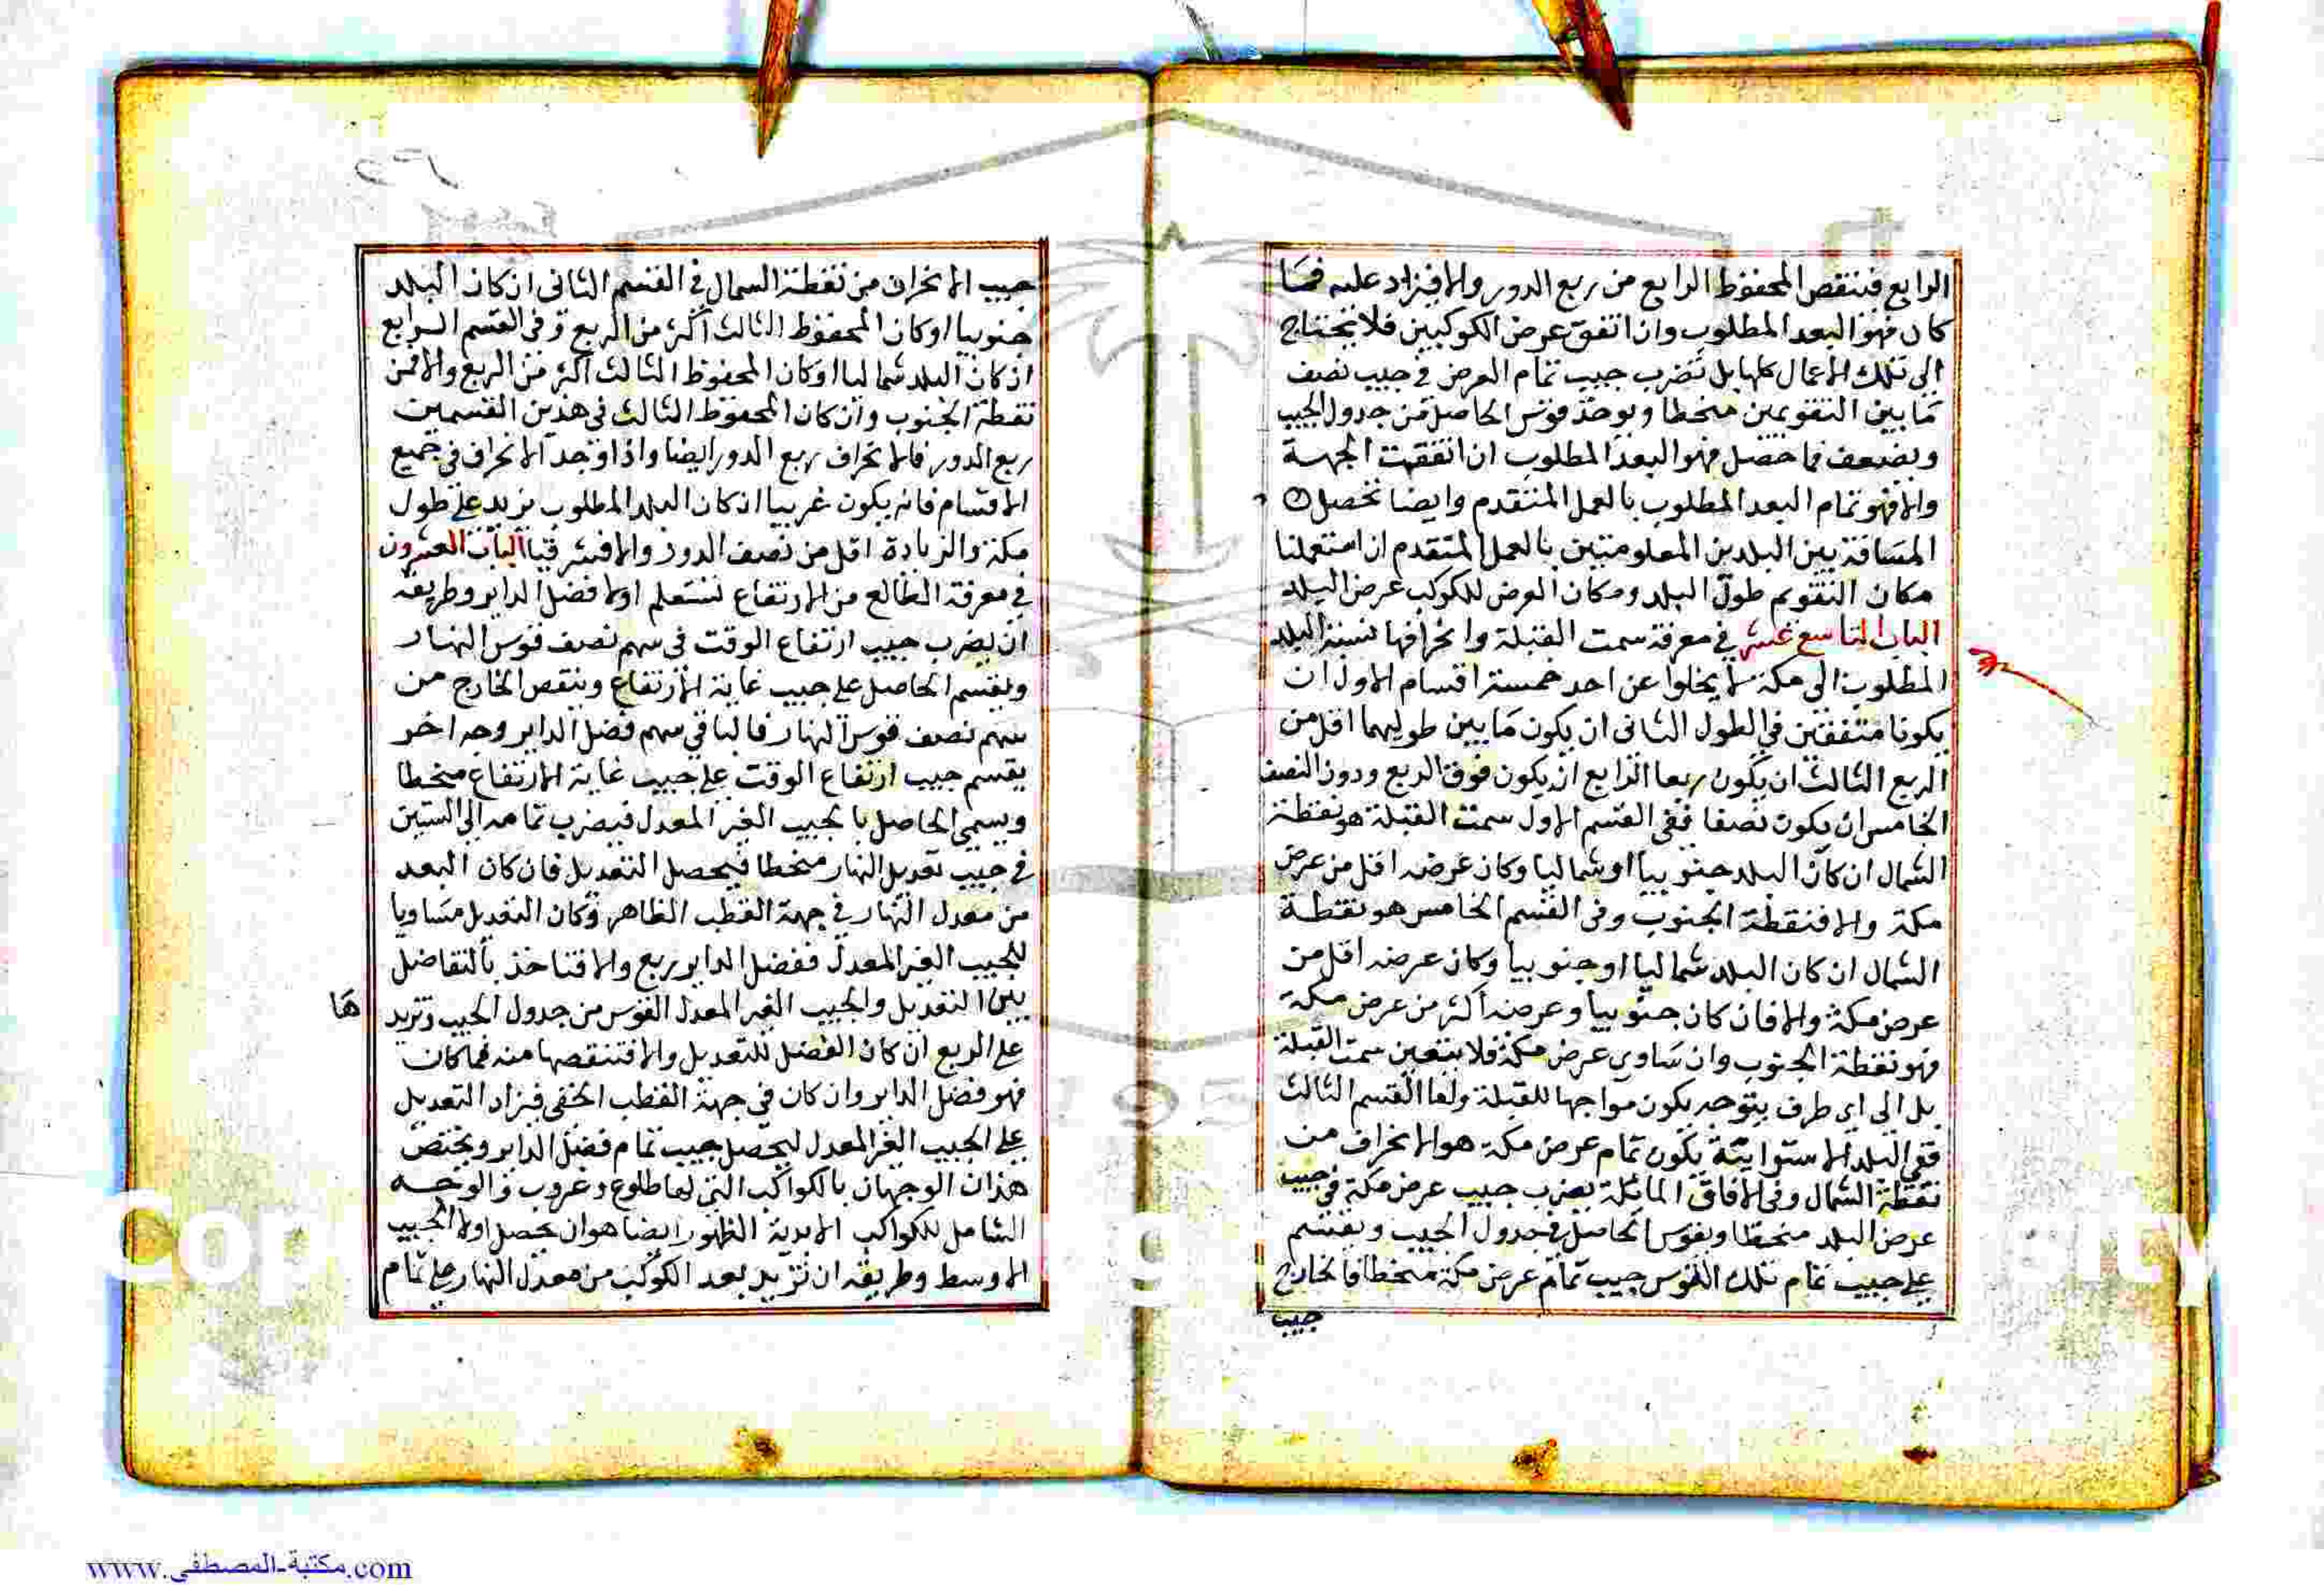 الرابع فننقص المحفوظ الرابع من ربع الدور والا فيزاد عليه فما
كان فهو البعد المطلوب وان اتفق عرض الكوكبين فلا نحتاج
الى تلك الاعمال كلها بل نضرب جيب تمام العرض في جيب نصف
ما بين التقويمين منحطا ويوخذ قوس الحاصل من جدول الجيب
ويضعف فما حصل فهو البعد المطلوب ان اتفقت الجهة
والا فهو تمام البعد المطلوب بالعمل المتقدم وايضا تحصل
المسافة بين البلدين المعلومتين بالعمل المتقدم ان استعملنا
مكان التقويم طول البلد ومكان العرض للكوكب عرض البلد
الباب التاسع عشر في معرفة سمت القبلة وانحرافها نسبة البلد
المطلوب الى مكة لا يخلوا عن احد خمسة اقسام الاول ان
يكونا متفقين في الطول الثاني ان يكون ما بين طوليهما اقل من
الربع الثالث ان يكون ربعا الرابع ان يكون فوق الربع ودون النصف
الخامس ان يكون نصفا ففي القسم الاول سمت القبلة هو نقطة
الشمال ان كان البلد جنوبيا او شماليا وكان عرضه اقل من عرض
مكة والا فنقطة الجنوب وفي القسم الخامس هو نقطة
الشمال ان كان البلد شماليا او جنوبيا وكان عرضه اقل من
عرض مكة والا فان كان جنوبيا وعرضه اكثر من عرض مكة
فهو نقطة الجنوب وان ساوى عرض مكة فلا يتعين سمت القبلة
بل الى اي طرف يتوجه يكون مواجها للقبلة واما القسم الثالث
ففي البلد الاستوايية يكون تمام عرض مكة هو الانحراف من
نقطة الشمال وفي الافاق المائلة يضرب جيب عرض مكة في جيب
عرض البلد منحطا ويقوس الحاصل في جدول الجيب ويقسم
على جيب تمام تلك القوس جيب تمام عرض مكة منحطا فالخارج
جيب
جيب الانحراف من نقطة الشمال في القسم الثاني ان كان البلد
جنوبيا او كان المحفوظ الثالث اكثر من الربع وفي القسم الرابع
ان كان البلد شماليا او كان المحفوظ الثالث اكثر من الربع والا فمن
نقطة الجنوب وان كان المحفوظ الثالث في هذين القسمين
ربع الدور فالانحراف ربع الدور ايضا واذا وجد الانحراف في جميع
الاقسام فانه يكون غربيا ان كان البلد المطلوب يزيد على طول
مكة والزيادة اقل من نصف الدور والا فشرقيا الباب العشرون
في معرفة الطالع من الارتفاع نستعلم اولا فضل الداير وطريقه
ان يضرب جيب ارتفاع الوقت في سهم نصف قوس النهار
ويقسم الحاصل على جيب غاية الارتفاع وينقص الخارج من
سهم نصف قوس النهار فالباقي سهم فضل الداير وجه اخر
يقسم جيب ارتفاع الوقت على جيب غاية الارتفاع منحطا
ويسمى الحاصل بالجيب الغير المعدل فيضرب تمامه الى الستين
في جيب تعديل النهار منحطا فيحصل التعديل فان كان البعد
من معدل النهار في جهة القطب الظاهر وكان التعديل مساويا
للجيب الغير المعدل ففضل الداير ربع والا فتاخذ بالتفاضل
بين التعديل والجيب الغير المعدل القوس من جدول الجيب وتزيدها
على الربع ان كان الفضل للتعديل والا فتنقصها منه فما كان
فهو فضل الداير وان كان في جهة القطب الخفي فيزاد التعديل
على الجيب الغير المعدل ليحصل جيب تمام فضل الداير ويختص
هذان الوجهان بالكواكب التي لها طلوع وغروب والوجه
الشامل للكواكب الابدية الظهور ايضا هو ان يحصل اولا الجيب
الاوسط وطريقه ان نزيد بعد الكوكب من معدل النهار على تمام
www.مكتبة-المصطفى.com